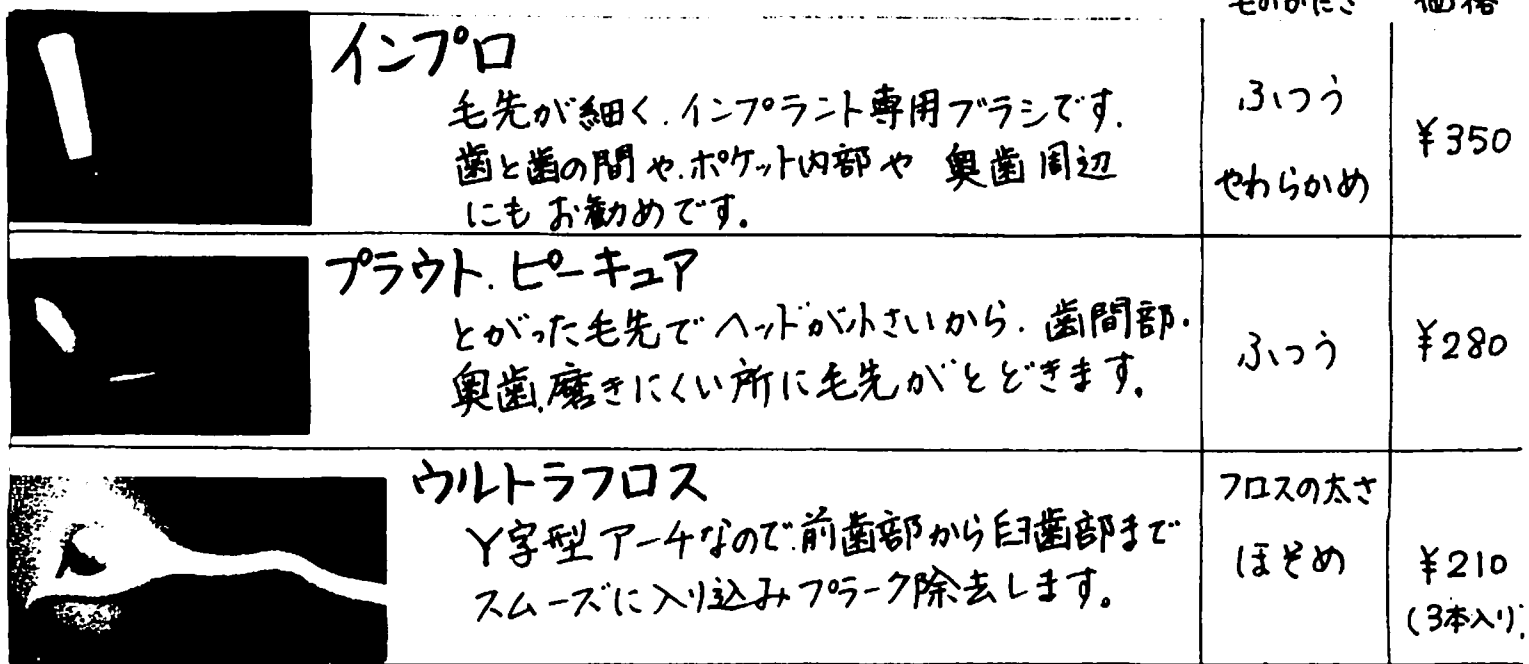 毛のかたさ 価格
インプロ
毛先が細く.インプラント専用ブラシです.
歯と歯の間や.ポケット内部や 奥歯周辺
にもお勧めです。
ふつう
やわらかめ
¥350
プラウト.ピーキュア
とがった毛先でヘッドが小さいから.歯間部.
奥歯.磨きにくい所に毛先がとどきます。
ふつう
¥280
ウルトラフロス
Y字型アーチなので.前歯部から臼歯部まで
スムーズに入り込みプラーク除去します。
フロスの太さ
ほそめ
¥210
(3本入り)